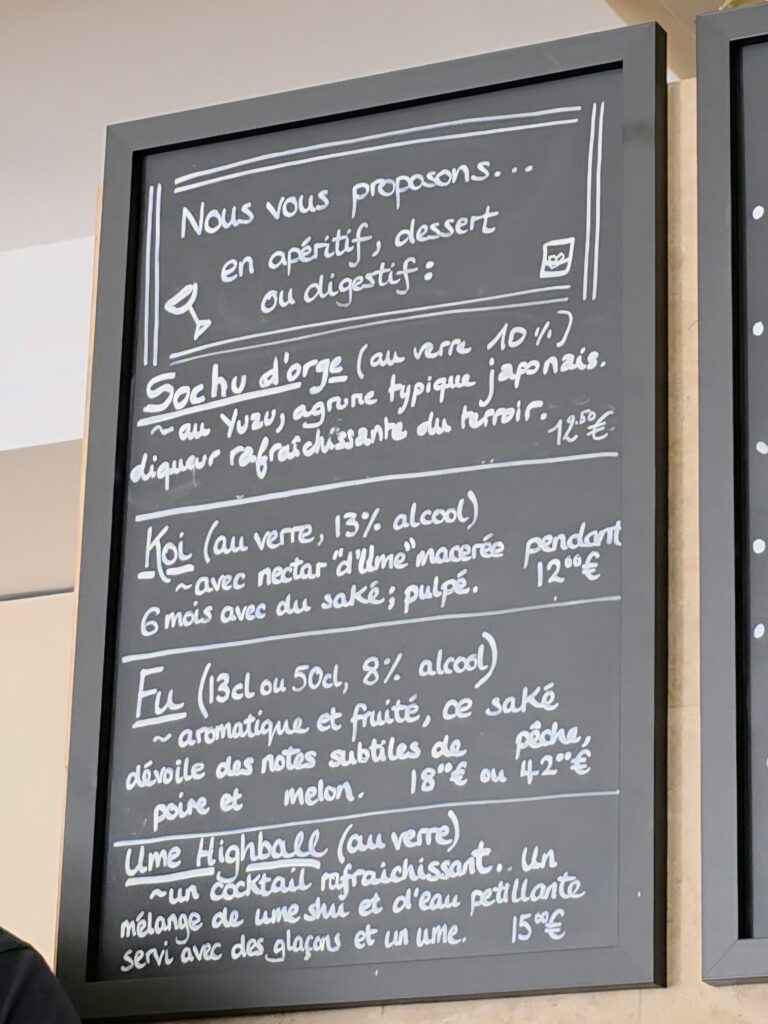 Nous vous proposons...
en apéritif, dessert
ou digestif:
Sochu d'orge (au verre 10%)
~ au Yuzu, agrume typique japonais.
liqueur rafraîchissante du terroir. 12.50€
Koi (au verre, 13% alcool)
~ avec nectar "d'Ume" macerée pendant
6 mois avec du saké; pulpé. 12.00€
Fu (13cl ou 50cl, 8% alcool)
~ aromatique et fruité, ce saké
dévoile des notes subtiles de pêche,
poire et melon. 18.00€ ou 42.00€
Ume Highball (au verre)
~ un cocktail rafraichissant.. Un
mélange de ume shu et d'eau petillante
servi avec des glaçons et un ume. 15.00€